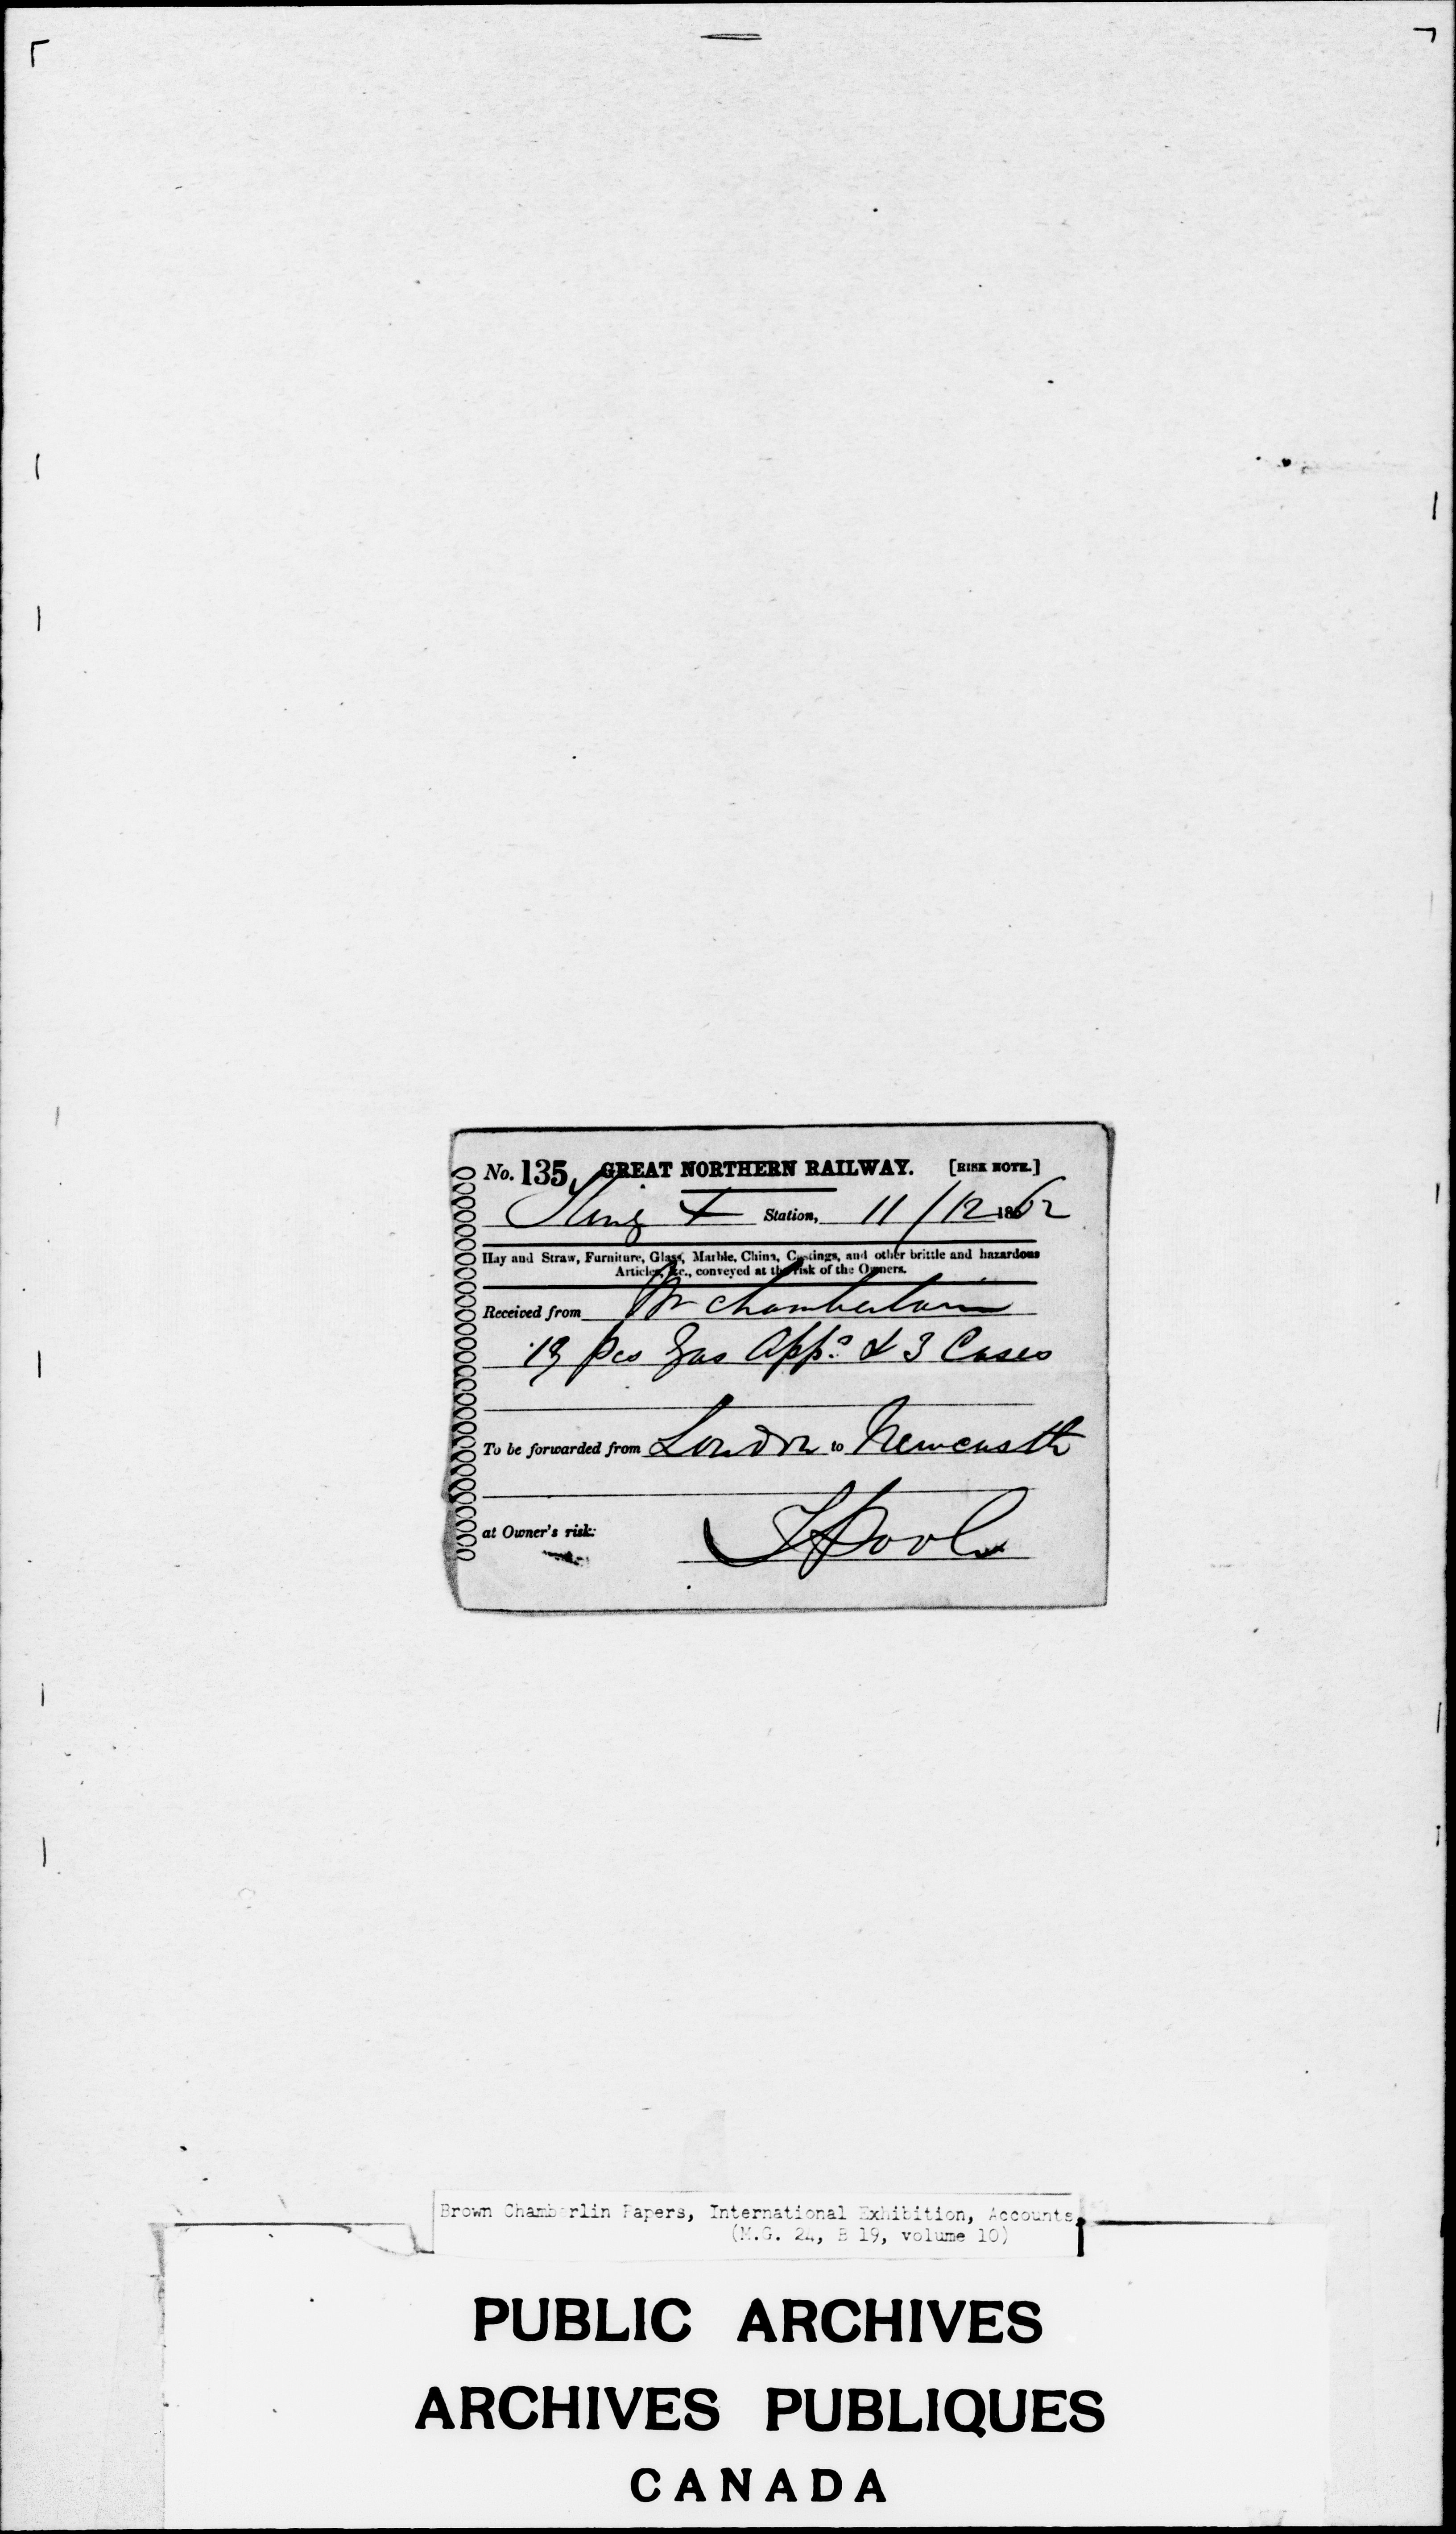 No. 135 GREAT NORTHERN RAILWAY. [RISK NOTE.]
King X Station, 11/12 1862
Hay and Straw, Furniture, Glass, Marble, China, Castings, and other brittle and hazardous
Articles, &c., conveyed at the risk of the Owners.
Received from Mr Chamberlain
19 pcs Gas Appº & 3 Cases
To be forwarded from London to Newcastle
at Owner's risk:
Brown Chamberlin Papers, International Exhibition, Accounts,
(M.G. 24, B 19, volume 10)
PUBLIC ARCHIVES
ARCHIVES PUBLIQUES
CANADA